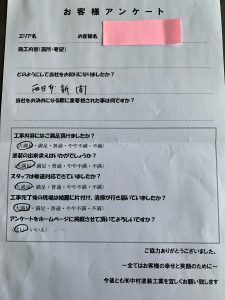 お客様アンケート
エリア名 お客様名
施工内容(箇所・要望)
どのようにして当社をお知りになりましたか？
西日本新聞
当社をお決めになる際に重要視された事は何ですか？
工事内容にはご満足頂けましたか？
(大満足・満足・普通・やや不満・不満)
塗装の出来栄えはいかがでしょうか？
(大満足・満足・普通・やや不満・不満)
スタッフは敏速対応できていましたか？
(大満足・満足・普通・やや不満・不満)
工事完了後の現場は綺麗に片付け、清掃が行き届いていましたか？
(大満足・満足・普通・やや不満・不満)
アンケートをホームページに掲載させて頂いてよろしいですか？
(はい・いいえ)
ご協力ありがとうございました。
～全てはお客様の幸せと笑顔のために～
今後とも㈲中村塗装工業を宜しくお願い致します